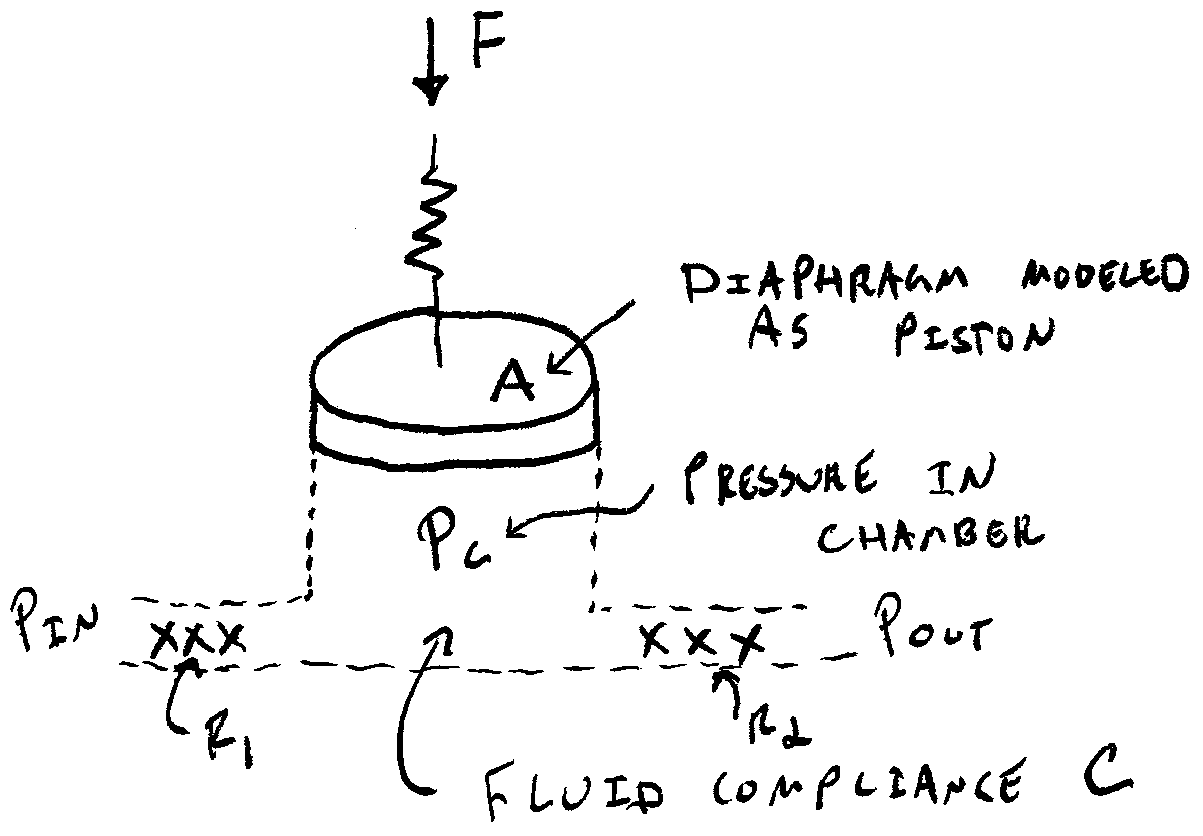 F
DIAPHRAGM MODELED
AS PISTON
A
PRESSURE IN
CHAMBER
Pc
PIN
XXX
XXX
POUT
R1
R2
FLUID COMPLIANCE C